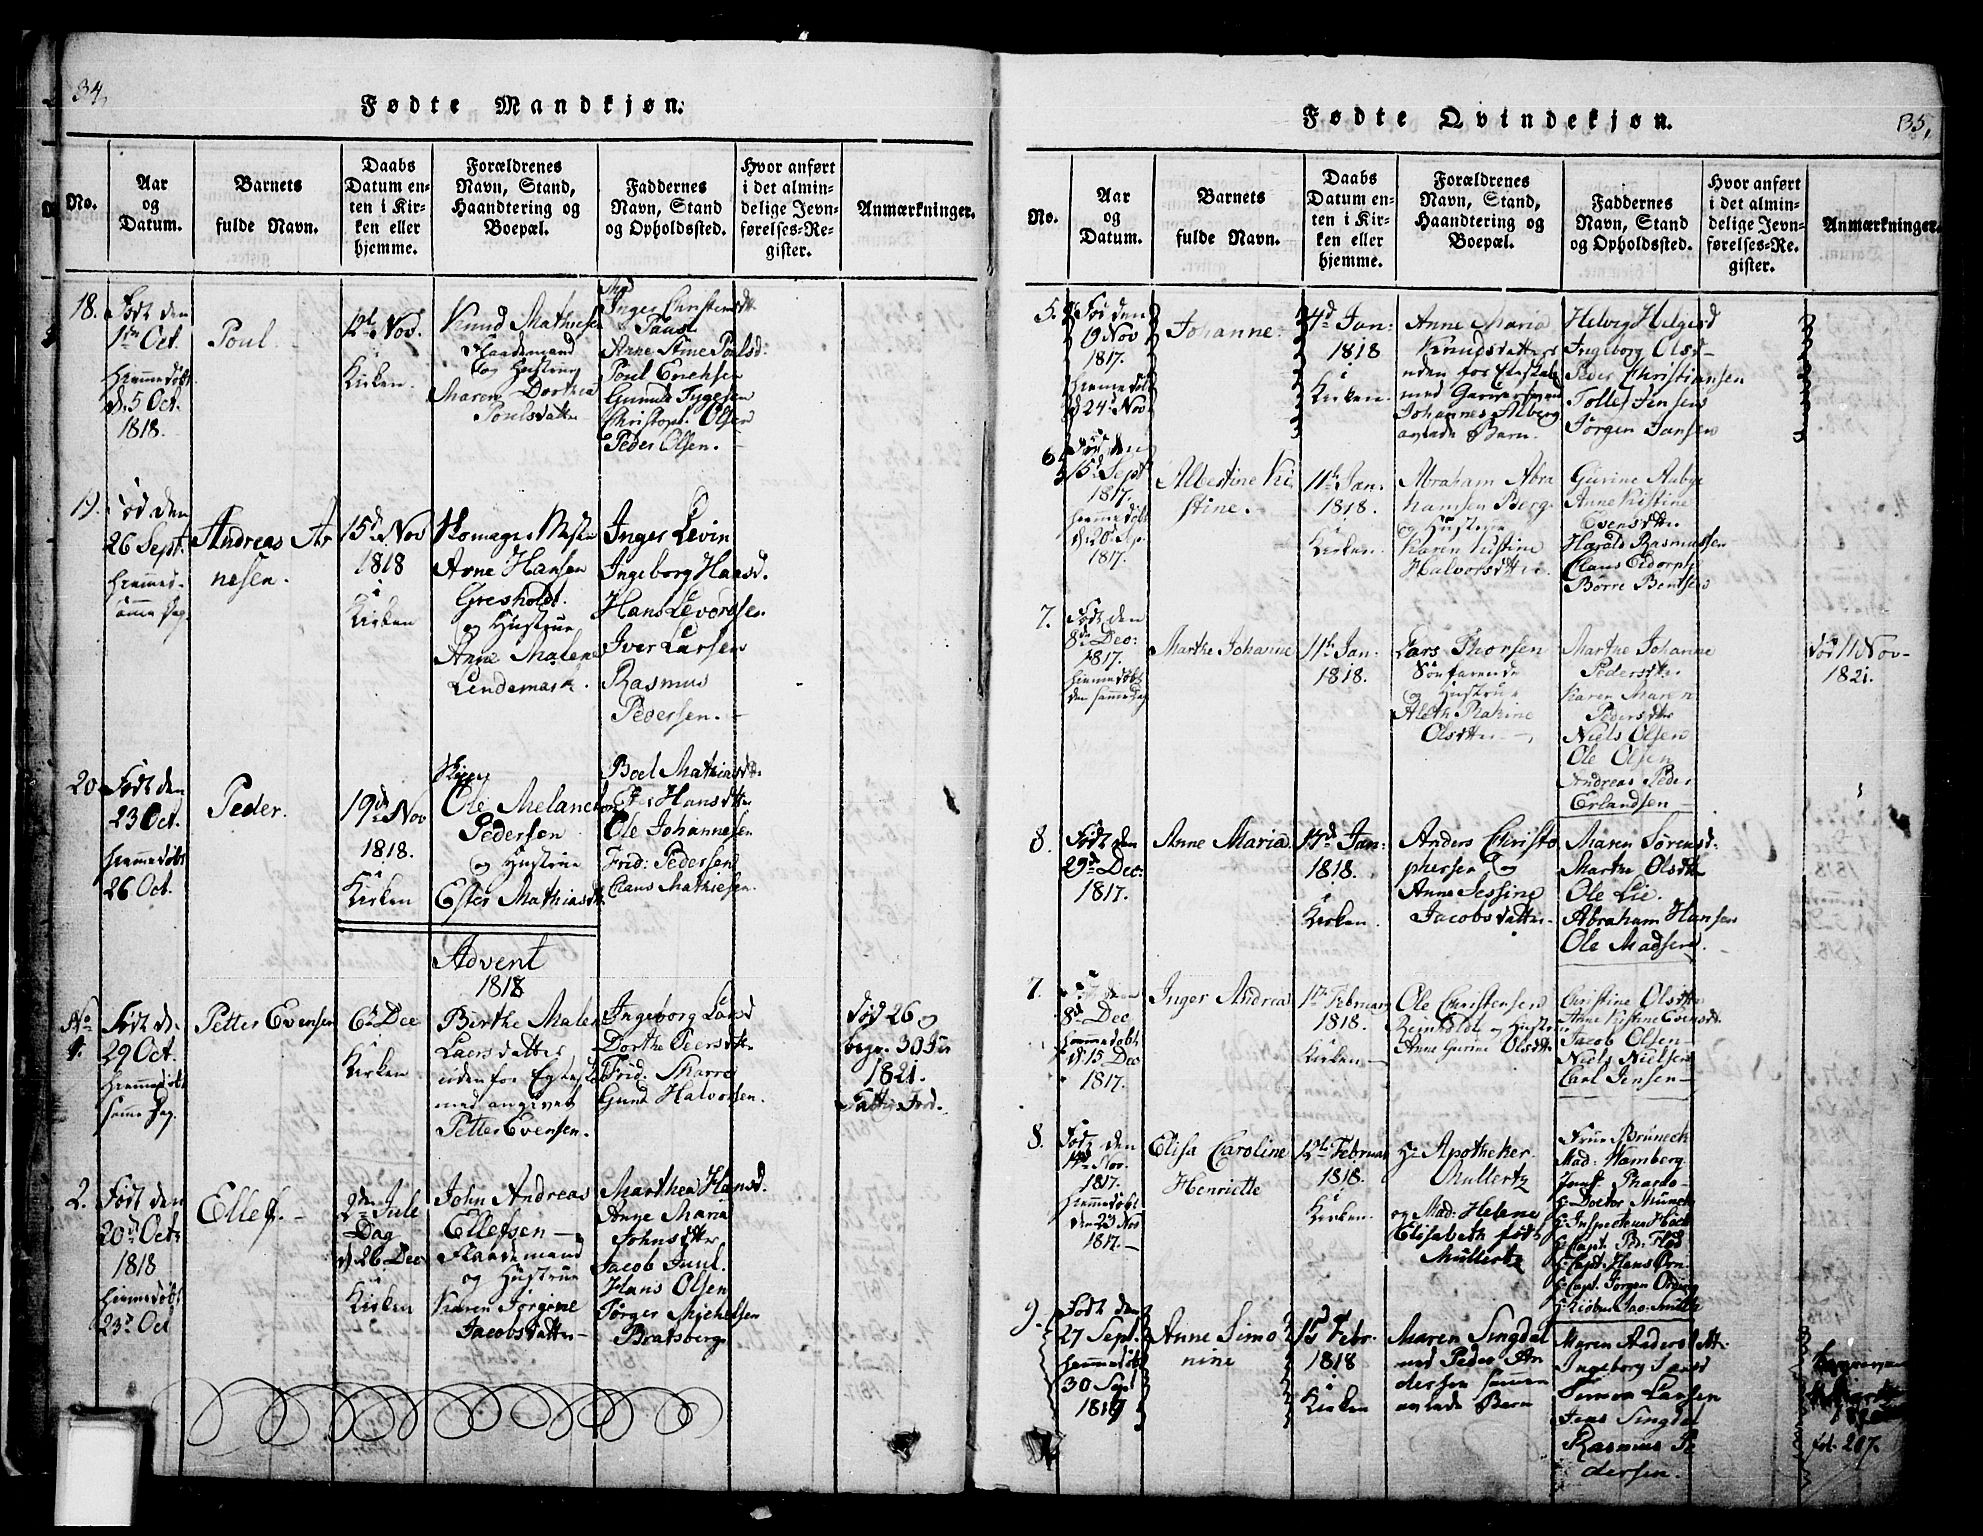 34.
Fødte Mandkjøn.
No.
Aar
og
Datum.
Barnets
fulde Navn.
Daabs
Datum en-
ten i Kir-
ken eller
hjemme.
Forældrenes
Navn, Stand,
Haandtering og
Boepæl.
Faddernes
Navn, Stand
og Opholdssted.
Hvor anført
i det almin-
delige Jevn-
førelses-Re-
gister.
Anmærkninger.
18.
Født den
1ste Oct.
hiemmedøbt
d. 5 Oct.
1818.
Poul.
12te Nov.
i
Kirken.
Knud Mathiesen
og Hustrue
Maren Dorthea
Poulsdatter
Inger Christensdtr
Anne Stine Poulsd.
Poul Erichsen
Christoph. Olsen
Peder Olsen.
19.
Fød den
26 Sept.
hiemmed.
samme Dag.
Andreas Ar
nesen.
15de Nov
1818
i
Kirken
Arne Hansen
og Hustrue
Anne Malene
Lindemark
Inger Levin
Ingeborg Haasd.
Hans Levordsen
Iver Larsen
Rasmus
Pedersen.
20
Født den
23 Oct.
hiemmedøbt
26 Oct.
Peder.
19de Nov
1818.
i
Kirken
Ole Melanchton
Pedersen
og Hustrue
Ester Mathiasdtr
Boel Mathiasdtr
Ester Hansdtr
Ole Johannesen
Frid: Pedersen
Claus Mathiesen.
Advent
1818
No
1.
Født d.
29 Oct.
hiemmedøbt
samme Dag.
Petter Evensen
6te Dec
i
Kirken
Birthe Malene
Laersdatter
uden for Egteskab
med angivet
Petter Evensen.
Ingeborg Larsd
Dorthe Peersdtr
Frid:
Gund Halvorsen.
Død 26 og
begr. 30 Jul
1821.
2.
Født den
20de Octr
1818
hiemmedøbt
23de Oct
Ellef.
2den Jule
Dag
d. 26 Dec
i
Kirken
John Andreas
Ellefsen
Flaademand
og Hustrue
Karen Jørgine
Jacobsdatter
Marthea Hansd.
Anne Maria
Johnsdtter
Jacob Juul.
Hans Olsen
Tørger Michelsen
Bratsberg
35.
Fødte Qvindekjøn.
No.
Aar
og
Datum.
Barnets
fulde Navn.
Daabs
Datum en-
ten i Kir-
ken eller
hjemme.
Forældrenes
Navn, Stand,
Haandtering og
Boepæl.
Faddernes
Navn, Stand
og Opholdssted.
Hvor anført
i det almin-
delige Jevn-
førelses-Re-
gister.
Anmærkninger.
5.
Fød den
19 Nov
1817.
hiemmedøbt
d 24de Nov
Johanne.
4de Jan:
1818
i
Kirken.
Anne Maria
Knudsdatter
uden for Egteskab
med
Johannes Alberg
avlede Barn.
Helvig Helgesd
Ingeborg Olsd
Peder Christiansen
Tollef Jensen
Jørgen Jansen
6.
Fød den
15de Sept
1817.
hiemmedøbt
d. 20de Sep.
1817.
Albertine Ki
stine.
11te Jan:
1818.
i
Kirken.
Abraham Abra
hamsen Berg
og Hustrue
Karen Kistine
Halvorsdtter.
Gurine Aabye
Anne Kistine
Evensdtr.
Harald Rasmussen
Claus Eidorph
Børre Bentsen
7.
Født den
8de Dec:
1817.
hiemmedøbt
den samme Dag
Marthe Johanne
11te Jan:
1818.
Lars Thorsen
Søefarende
og Hustrue
Aleth Rakine
Olsdtter
Marthe Johanne
Pedersdtr
Karen Maren
Pedersdtr
Niels Olsen
Ole Olsen
Andreas Peder
Erlandsen
død 11 Nov
1821.
8.
Født den
29de Dec:
1817.
Anne Maria
17de Jan:
1818.
i
Kirken.
Anders Christo
phersen og
Anne Sessine
Jacobsdatter
Maren Sørensd.
Marthe Olsdtr
Ole Lie.
Abraham Hansen
Ole Madsen.
7.
Født den
8de Dec
hiemmedøbt
d. 15 Dec
1817.
Inger Andrea
1ste Februar
1818.
i
Kirken
Ole Christensen
Reinholdt og Hustrue
Anne Gurine Olsdtr
Christine Olsdtr
Anne Kistine Evensdtr
Jacob Olsen
Niels Nielsen
Carl Jensen
8.
Født den
Nov.
1817.
hiemmedøbt
den 23 Nov
1817.
Elisa Caroline
Henriette
12te Februar
1818.
i
Kirken.
Hr Apotheker
Mullertz
og Mad: Helene
Elisabeth født
Müllertz
Frue Bruneck
Mad: Hamberg.
Jomf:
Hr Doctor Munch
Hr Capt. Pet: Flød
Hr Capt: Hans Ørn
Hr Capt. Jørgen
9.
Født den
27 Sept.
hiemmedøbt
30 Sept
1817
Anne Simo
nine
15de Febr.
1818
i
Kirken
Maren Singdal
med Peder An
dersen sammen
avlede Barn
Maren Andersdtr.
Ingeborg
Simon Larsen
Jens Singdal
Rasmus Pe
dersen.
fol. 207.